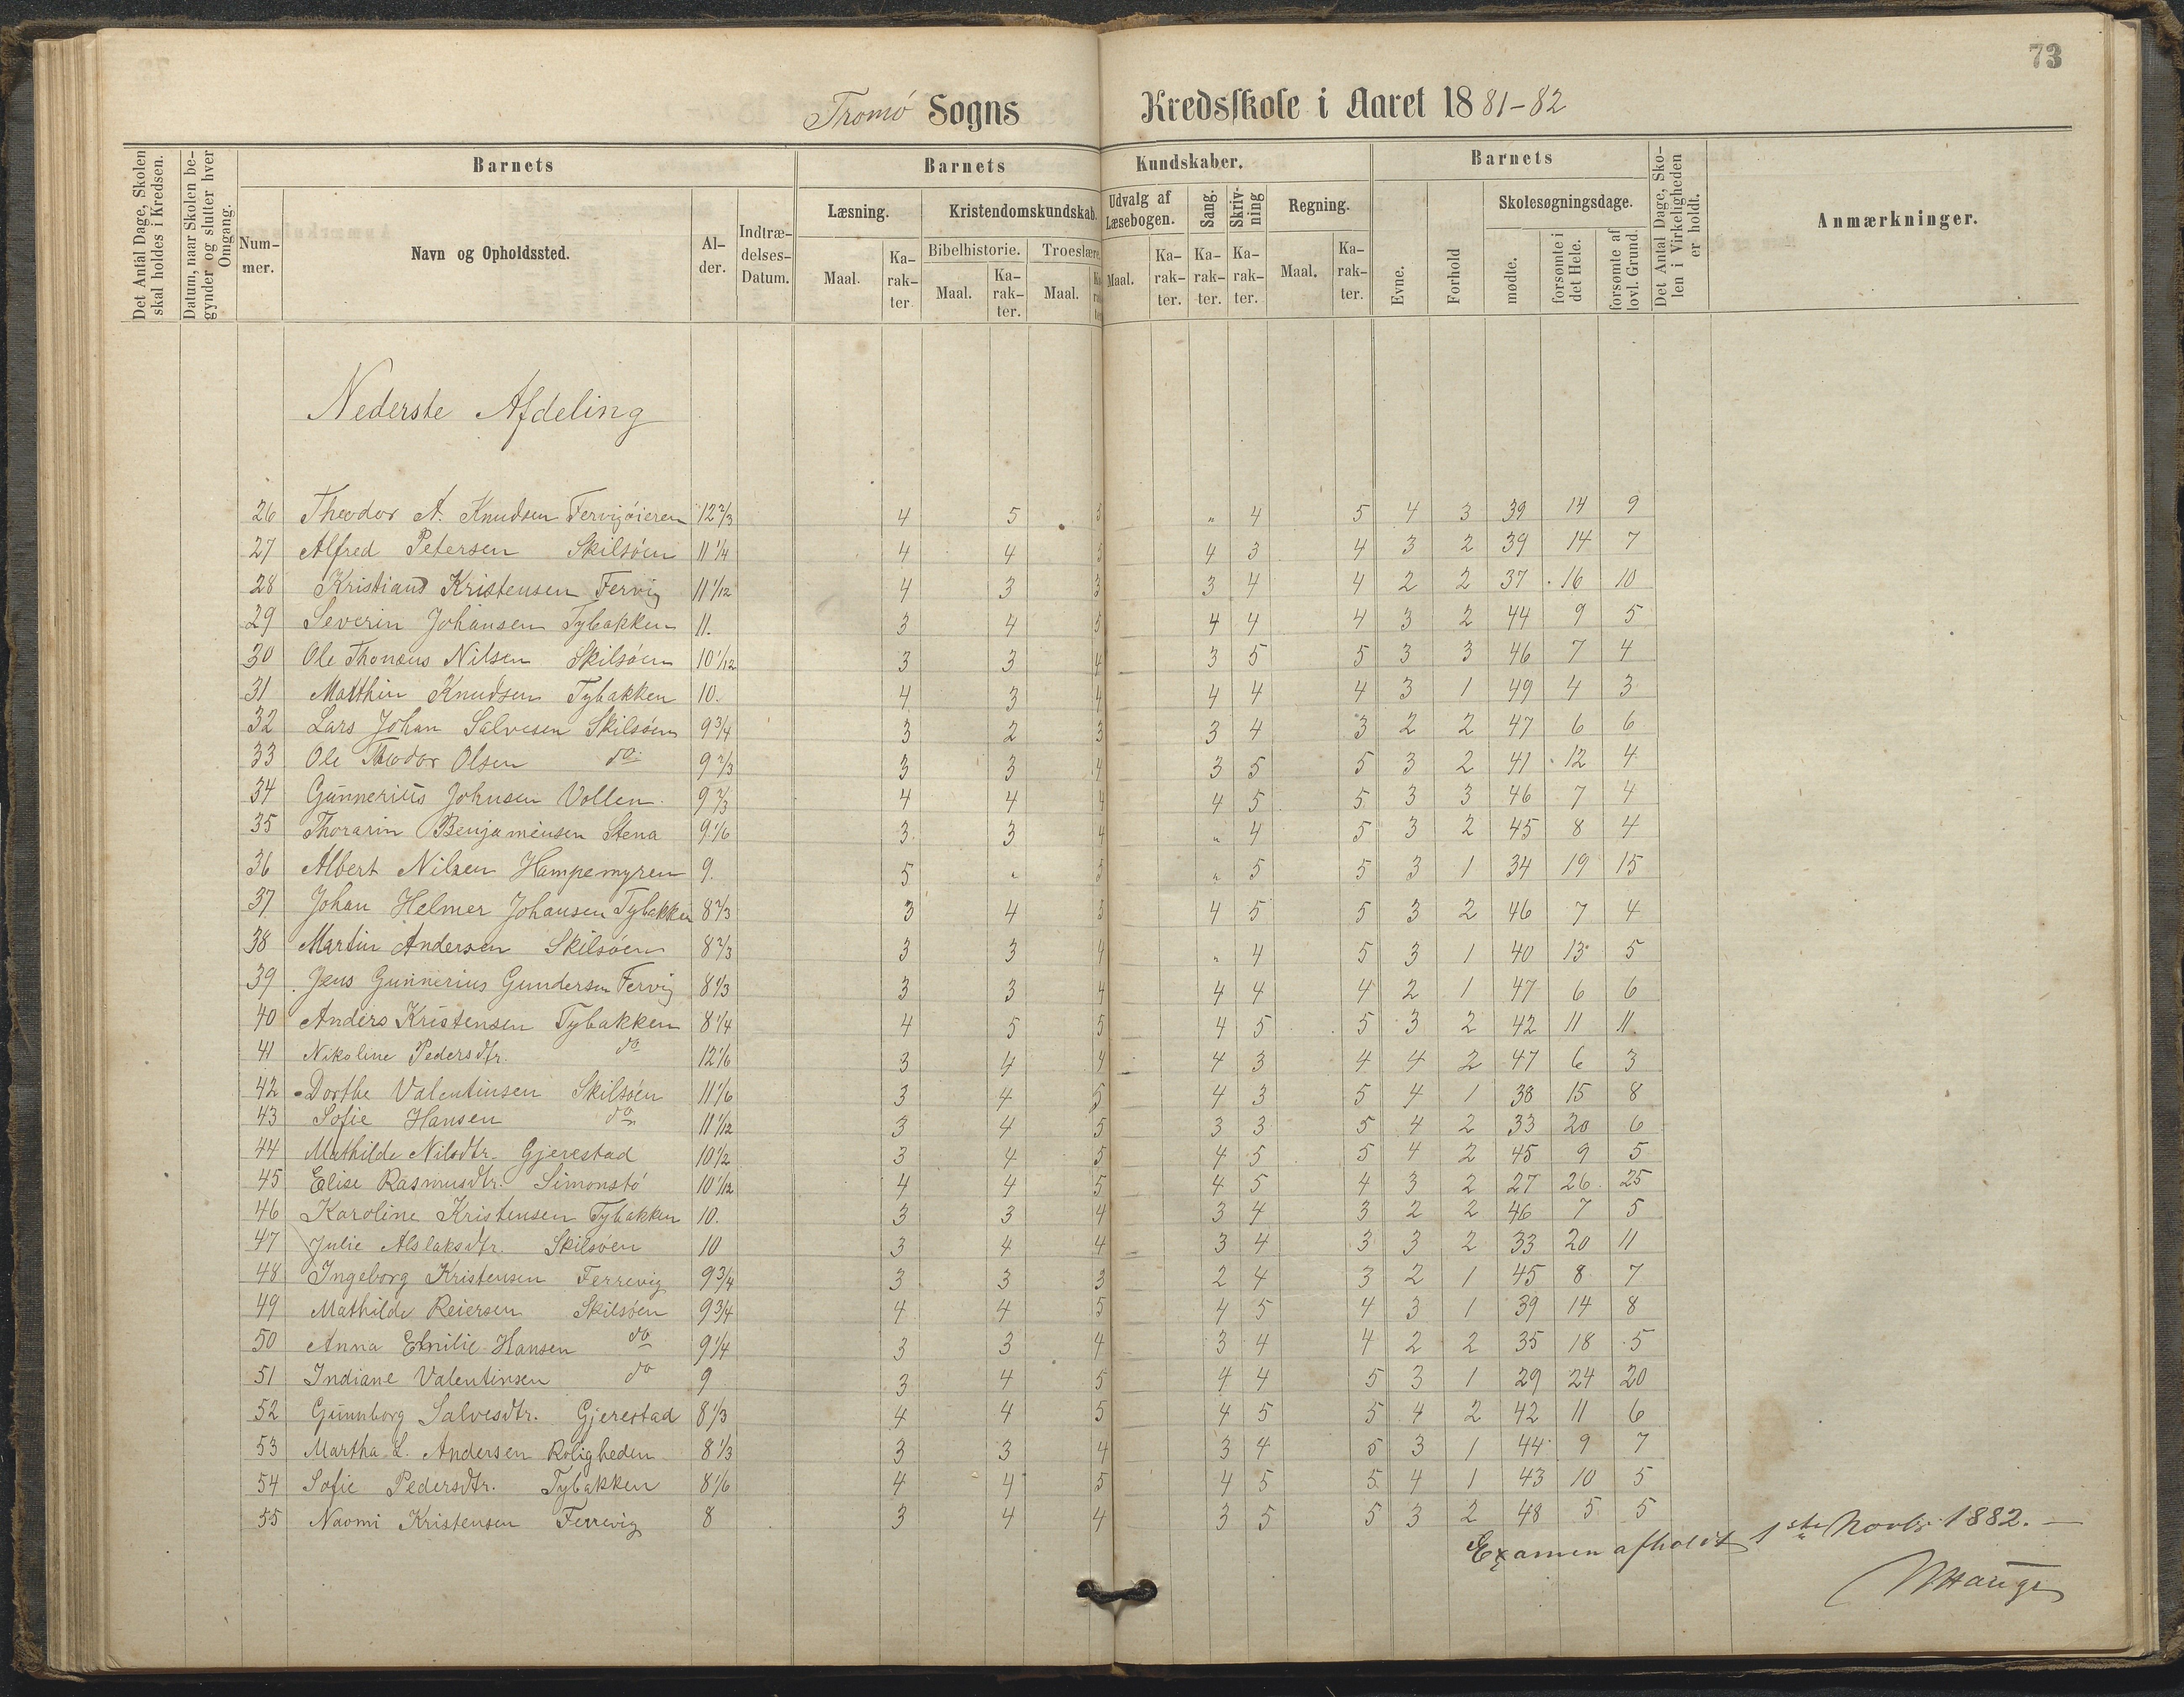 73
Tromö Sogns Kredsskole i Aaret 1881-82
Det Antal Dage, Skolen skal holdes i Kredsen.
Datum, naar Skolen begynder og slutter hver Omgang.
Barnets
Nummer.
Navn og Opholdssted.
Alder.
Indtrædelses-Datum.
Barnets Kundskaber.
Læsning.
Maal.
Karakter.
Kristendomskundskab.
Bibelhistorie.
Maal.
Karakter.
Troeslære.
Maal.
Karakter.
Udvalg af Læsebogen.
Maal.
Karakter.
Sang.
Karakter.
Skrivning
Karakter.
Regning.
Maal.
Karakter.
Barnets
Evne.
Forhold
Skolesøgningsdage.
mødte.
forsømte i det Hele.
forsømte af lovl. Grund.
Det Antal Dage, Skolen i Virkeligheden er holdt.
Anmærkninger.
Nederste Afdeling
26 Theodor A. Knudsen Fervigöieren 12 2/3 4 5 5 " 4 5 4 3 39 14 9
27 Alfred Petersen Skilsöen 11 1/4 4 4 5 4 3 4 3 2 39 14 7
28 Kristiand Kristensen Fervig 11 1/12 4 3 3 3 4 4 2 2 37 16 10
29 Severin Johansen Tybakken 11. 3 4 5 4 4 4 3 2 44 9 5
30 Ole Thomeus Nilsen Skilsöen 10 1/12 3 3 4 3 5 5 3 3 46 7 4
31 Matthin Knudsen Tybakken 10. 4 3 4 4 4 4 3 1 49 4 3
32 Lars Johan Salvesen Skilsöen 9 3/4 3 2 3 3 4 3 2 2 47 6 6
33 Ole Theodor Olsen do 9 2/3 3 3 4 3 5 5 3 2 41 12 4
34 Gunnerius Johnsen Vollen. 9 2/3 4 4 4 4 5 5 3 3 46 7 4
35 Thorarin Benjaminsen Stena 9 1/6 3 3 4 " 4 5 3 2 45 8 4
36 Albert Nilsen Hampemyren 9. 5 " 5 " 5 5 3 1 34 19 15
37 Johan Helmer Johansen Tybakken 8 2/3 3 4 3 4 5 5 3 2 46 7 4
38 Martin Andersen Skilsöen 8 2/3 3 3 4 " 4 5 3 1 40 13 5
39 Jens Gunnerius Gundersen Fervig 8 1/3 3 3 4 4 4 4 2 1 47 6 6
40 Anders Kristensen Tybakken 8 1/4 4 5 5 4 5 5 3 2 42 11 11
41 Nikoline Pedersdtr. do 12 1/6 3 4 4 4 3 4 4 2 47 6 3
42 Dorthe Valentinsen Skilsöen 11 1/6 3 4 5 4 3 5 4 1 38 15 8
43 Sofie Hansen do 11 1/12 3 4 5 3 3 5 4 2 33 20 6
44 Mathilde Nilsdtr. Gjerestad 10 1/2 3 4 5 4 5 5 4 2 45 9 5
45 Elise Rasmusdtr. Simonstö 10 1/12 4 4 5 4 5 4 3 2 27 26 25
46 Karoline Kristensen Tybakken 10. 3 3 4 3 4 3 2 2 46 7 5
47 Julie Aslaksdtr. Skilsöen 10 3 4 4 3 4 3 3 2 33 20 11
48 Ingeborg Kristensen Ferrevig 9 3/4 3 3 3 2 4 3 2 1 45 8 7
49 Mathilde Reiersen Skilsöen 9 3/4 4 4 5 4 5 4 3 1 39 14 8
50 Anna Emilie Hansen do 9 1/4 3 3 4 3 4 4 2 2 35 18 5
51 Indiane Valentinsen do 9 3 4 5 4 4 5 3 1 29 24 20
52 Gunnborg Salvesdtr. Gjerestad 8 1/3 4 4 5 4 5 5 4 2 42 11 6
53 Martha L. Andersen Roligheden 8 1/3 3 3 4 3 4 5 3 1 44 9 7
54 Sofie Pedersdtr. Tybakken 8 1/6 4 4 5 4 5 5 4 1 43 10 5
55 Naomi Kristensen Ferrevig 8 3 4 4 3 5 5 3 2 48 5 5
Examen afholdt 1ste Novbr. 1882. —
Hauge